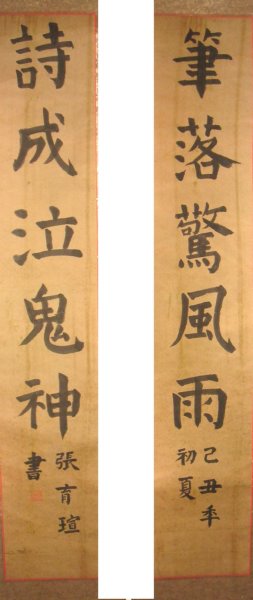 筆落驚風雨
己丑年
初夏
詩成泣鬼神
張育瑄
書